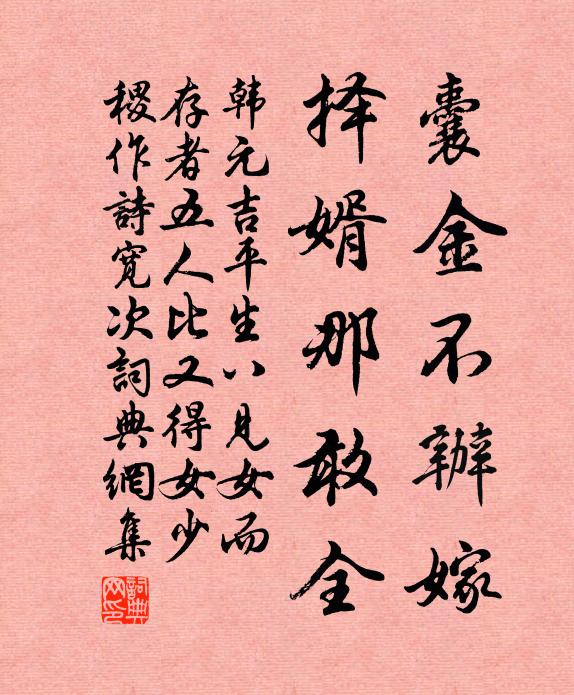 囊金不辦嫁
择婿那敢全
韩元吉平生八見女而
存者五人比又得女少
稷作詩寬次詞典網集
詞典网印